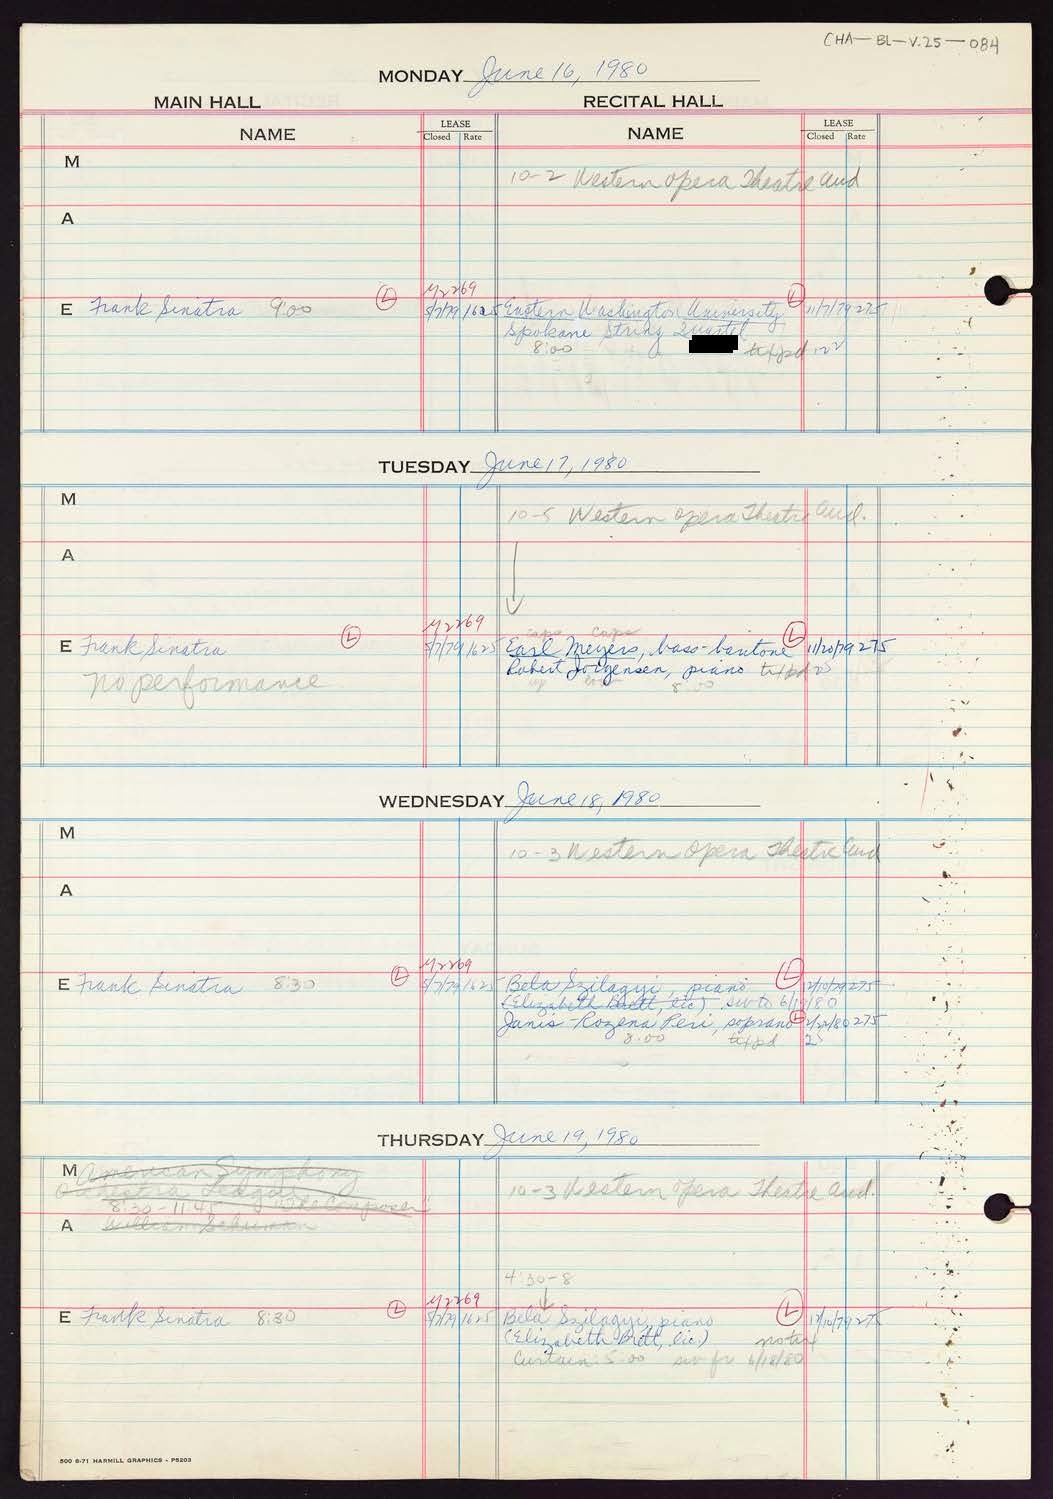 CHA-BL-V.25-084
MONDAY June 16, 1980
MAIN HALL RECITAL HALL
NAME LEASE Closed Rate NAME LEASE Closed Rate
M
10-2 Western Opera Theatre Aud
A
M2269
E Frank Sinatra 9:00 L 5/7/79 1625 Eastern Washington University L 11/7/79 275
Spokane String Quartet
8:00 tx/pd
TUESDAY June 17, 1980
M
10-5 Western Opera Theatre Aud.
A
M2269
caps caps
E Frank Sinatra L 5/7/79 1625 Earl Meyers, bass-baritone L 11/20/79 275
No performance
Robert Jorgensen, piano tx/pd
8:00
WEDNESDAY June 18, 1980
M
10-3 Western Opera Theatre Aud
A
M2269
E Frank Sinatra 8:30 L 5/7/79 1625 Bela Szilagyi, piano L 12/10/79 275
(Elizabeth Brett, lic) sw to 6/19/80
Janis-Rozena Peri, soprano L 275
8:00 tx/pd
THURSDAY June 19, 1980
M American Symphony
Orchestra League
8:30-11:45 "The Composer"
10-3 Western Opera Theatre Aud.
A William Schuman
4:30-8
M2269
E Frank Sinatra 8:30 L 5/7/79 1625 Bela Szilagyi, piano L 12/10/79 275
(Elizabeth Brett, lic.) notax
Curtain: 5:00 sw fr 6/18/80
500 6-71 HARMILL GRAPHICS - P5203